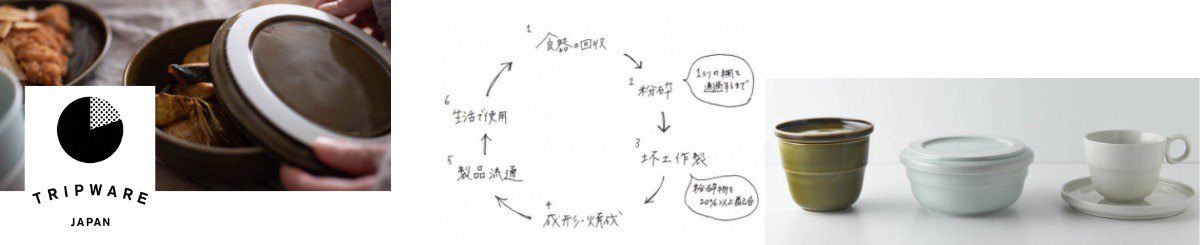 TRIPWARE
JAPAN
1 食器の回収
2 粉砕
1ミリの網を
通過するまで
3 坏土作製
粉砕物を
20%以上配合
4 成形・焼成
5 製品流通
6 生活で使用